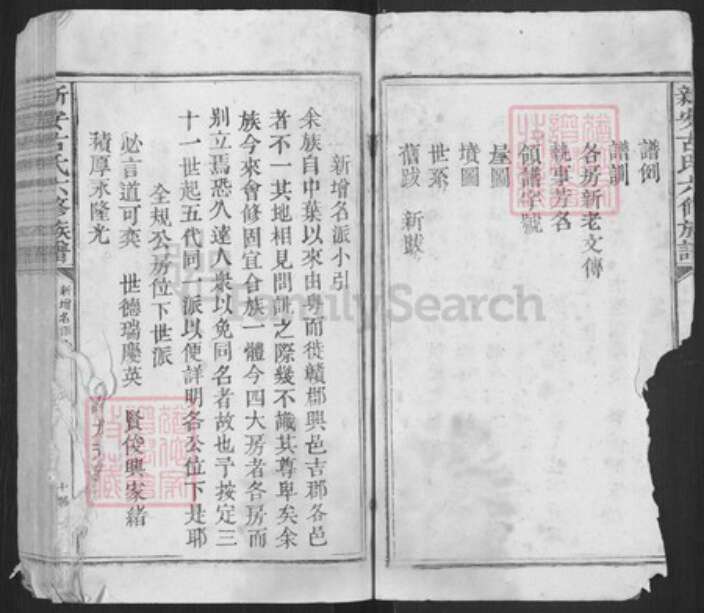 新安古氏六修族譜
譜例
譜訓
各房新老文傳
執事芳名
領譜字號
屋圖
墳圖
世系
舊跋 新跋
新增名派小引
余族自中葉以來由粤而徙贛郡興邑吉郡各邑
者不一其地相見問訊之際幾不識其尊卑矣余
族今來會修固宜合族一體今四大房者各房而
别立焉恐久遠人衆以免同名者故也予按定三
十一世起五代同一派以便詳明各公位下是耶
全規公房位下世派
必言道可奕 世德瑞慶英 賢俊興家緒
積厚永隆光
新安古氏六修族譜
新增名派
FamilySearch